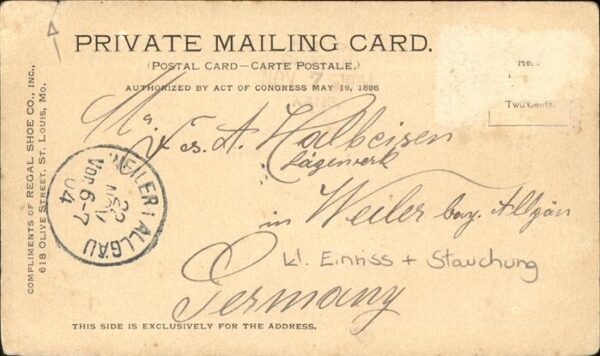 PRIVATE MAILING CARD.
(POSTAL CARD—CARTE POSTALE.)
AUTHORIZED BY ACT OF CONGRESS MAY 19, 1898
Two Cents.
NOV 7
A. Halbeisen
Sägewerk
in Weiler bay. Allgäu
kl. Einriss + Stauchung
Germany
WEILER i. ALLGÄU
22
NOV
Vor 6-7
04
COMPLIMENTS OF REGAL SHOE CO., INC.,
618 OLIVE STREET, ST. LOUIS, MO.
THIS SIDE IS EXCLUSIVELY FOR THE ADDRESS.